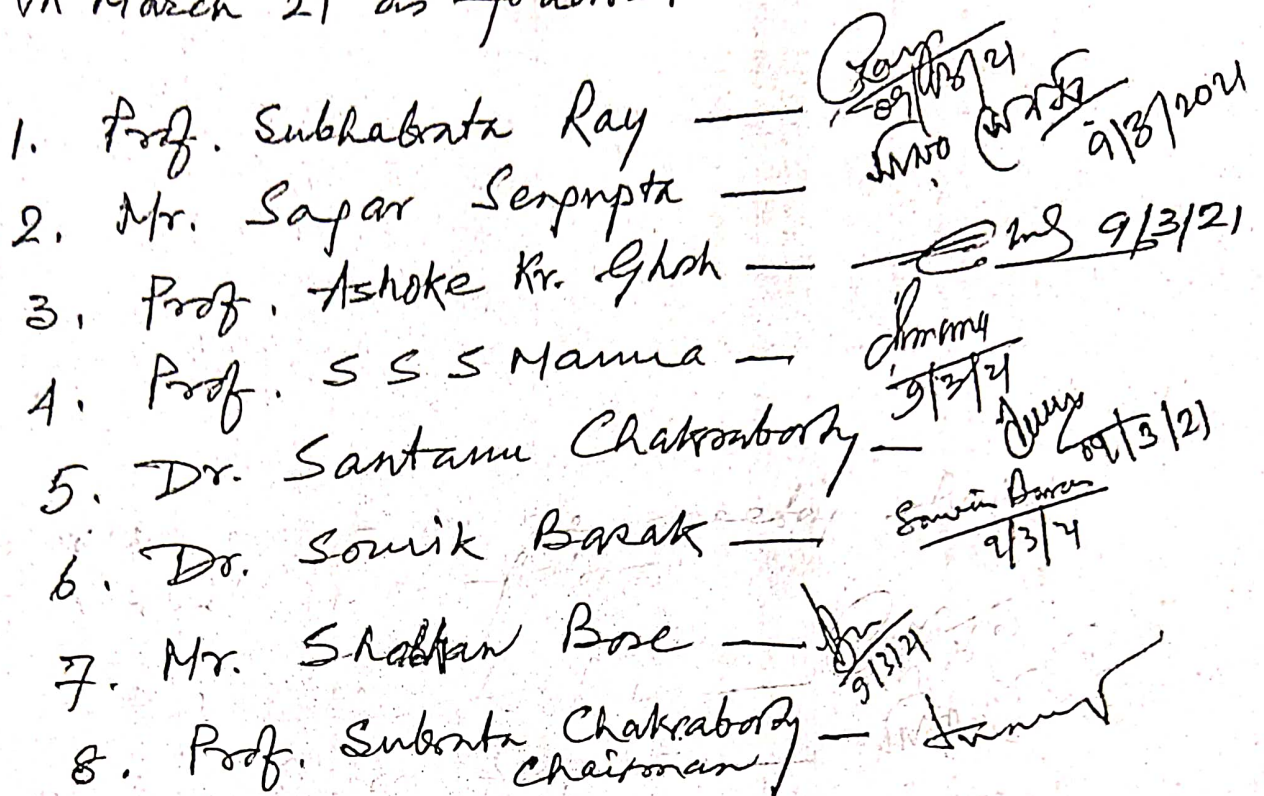 on March 21 as
1. Prof. Subhabrata Ray — Ray 09/03/21
2. Mr. Sagar Sengupta — 9/3/2021
3. Prof. Ashoke Kr. Ghosh — 9/3/21
4. Prof. S S S Manna — 9/3/21
5. Dr. Santanu Chakraborty — 09/3/21
6. Dr. Souvik Basak — 9/3/21
7. Mr. Bose — 9/3/21
8. Prof. Subrata Chakraborty —
Chairman